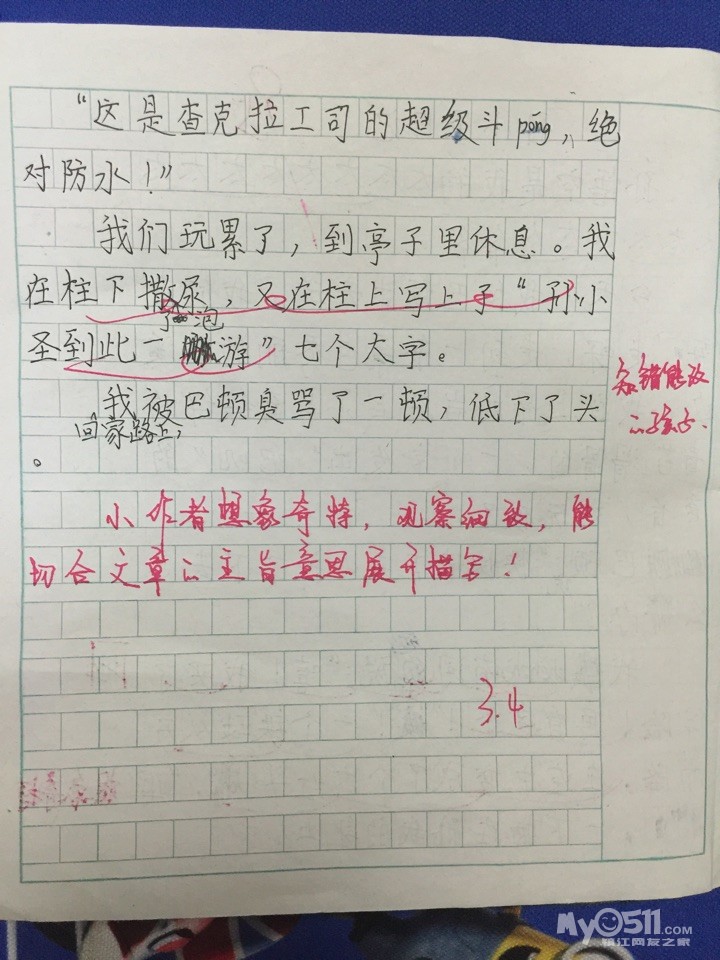 “这是查克拉工司的超级斗péng，绝
对防水！”
我们玩累了，到亭子里休息。我
在柱下撒了泡尿，又在柱上写上了“孙小
圣到此一游”七个大字。
回家路上，我被巴顿臭骂了一顿，低下了头
。
知错能改
的孩子.
小作者想象奇特，观察细致，能
切合文章的主旨意思展开描写！
3.4
My0511.COM
镇江网友之家